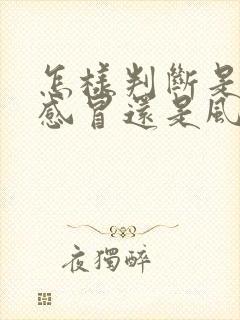 怎樣判斷是
感冒還是風
夜獨醉